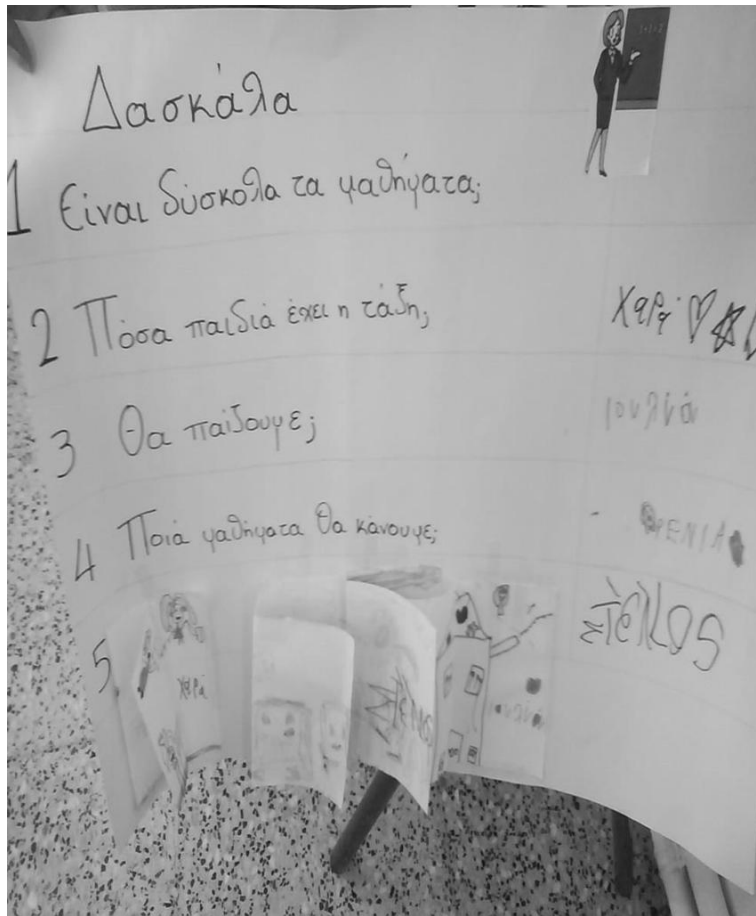 Δασκάλα
1 Είναι δύσκολα τα μαθήματα;
2 Πόσα παιδιά έχει η τάξη; Χαρά
3 Θα παίξουμε; Ιουλιά
4 Ποιά μαθήματα θα κάνουμε; ΡΕΝΙΑ
ΣΤΕΛΙΟS
5
Χαρά